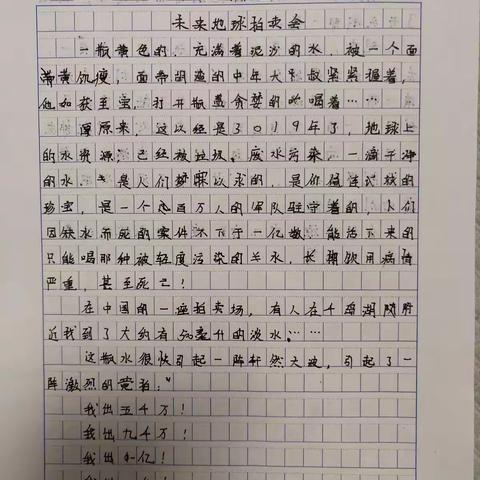 未来地球拍卖会
一瓶黄色的、充满着泥沙的水，被一个面
黄饥瘦，面带的中年大叔紧紧握着，
他如获至宝，打开瓶盖贪婪的吮喝着……
原来，这以经是3019年了，地球上
的水资源，已经被垃圾、废水污染，一滴干净
的水，是人们梦寐以求的，是价值连城的
珍宝，是一个百万人的军队驻守着的，人们
因缺水而死的案件不下于一亿数，能活下来的
只能喝那种被轻度污染的羊水，长期饮用病情
严重，甚至死亡！
在中国的一座拍卖场，有人在千岛湖附
近找到了大约有50毫升的淡水……
这瓶水很快引起一阵轩然大波，引起了一
阵激烈的竞拍：“
我出五千万！
我出九千万！
我出一亿！